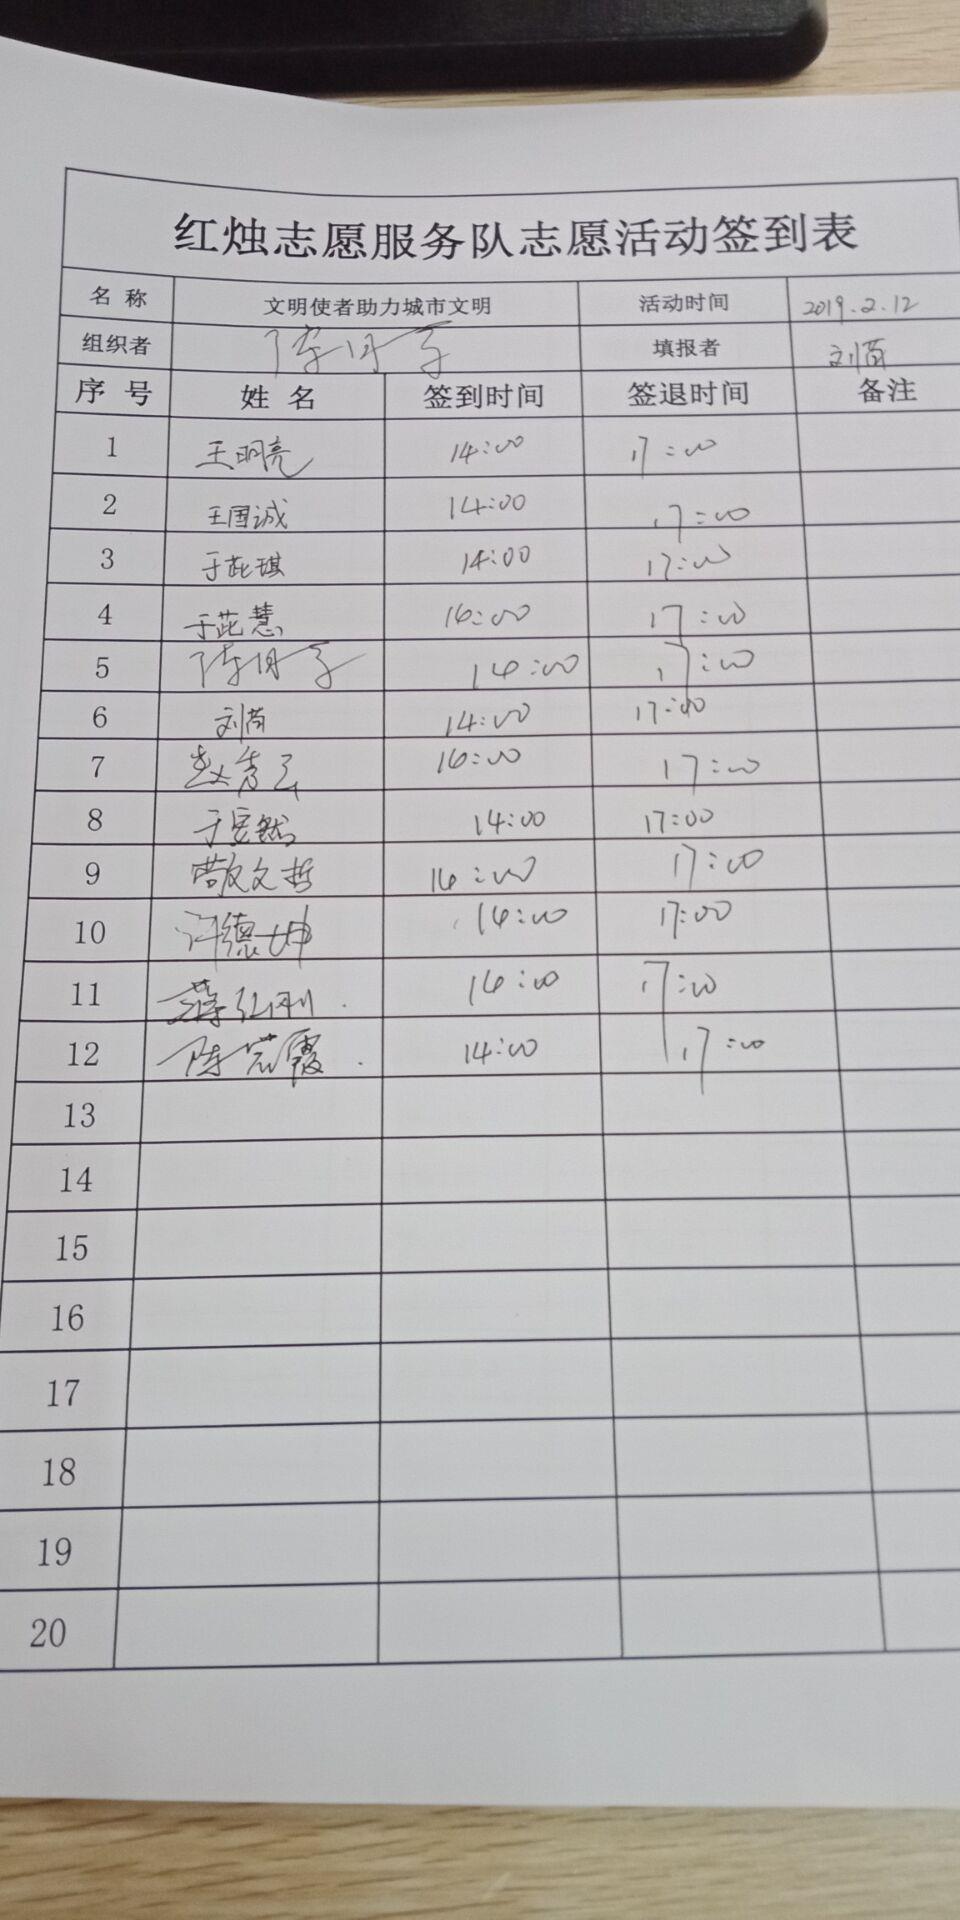 红烛志愿服务队志愿活动签到表
名 称 文明使者助力城市文明 活动时间 2019.2.12
组织者 填报者 刘
序 号 姓 名 签到时间 签退时间 备注
1 王明亮 14:00 17:00
2 王国诚 14:00 17:00
3 于芘琪 14:00 17:00
4 于芘慧 14:00 17:00
5 14:00 17:00
6 刘 14:00 17:00
7 14:00 17:00
8 于昱然 14:00 17:00
9 文哲 14:00 17:00
10 许德坤 14:00 17:00
11 蒋红刚 14:00 17:00
12 陈 霞 14:00 17:00
13
14
15
16
17
18
19
20